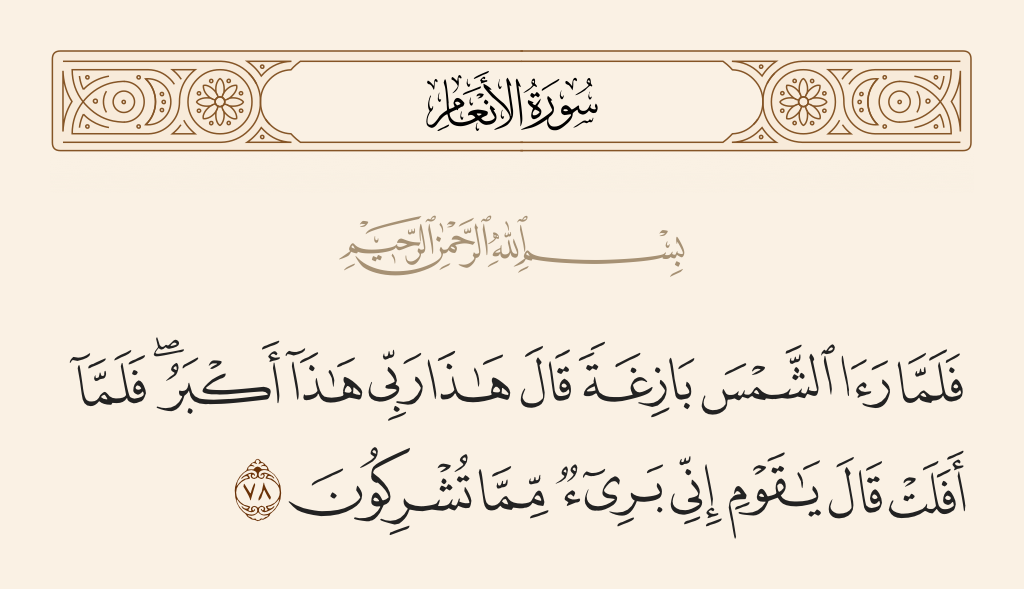 سُورَةُ الأَنْعَامِ
بِسْمِ ٱللَّهِ ٱلرَّحْمَٰنِ ٱلرَّحِيمِ
فَلَمَّا رَءَا ٱلشَّمْسَ بَازِغَةً قَالَ هَـٰذَا رَبِّى هَـٰذَآ أَكْبَرُ ۖ فَلَمَّآ
أَفَلَتْ قَالَ يَـٰقَوْمِ إِنِّى بَرِىٓءٌ مِّمَّا تُشْرِكُونَ ٧٨